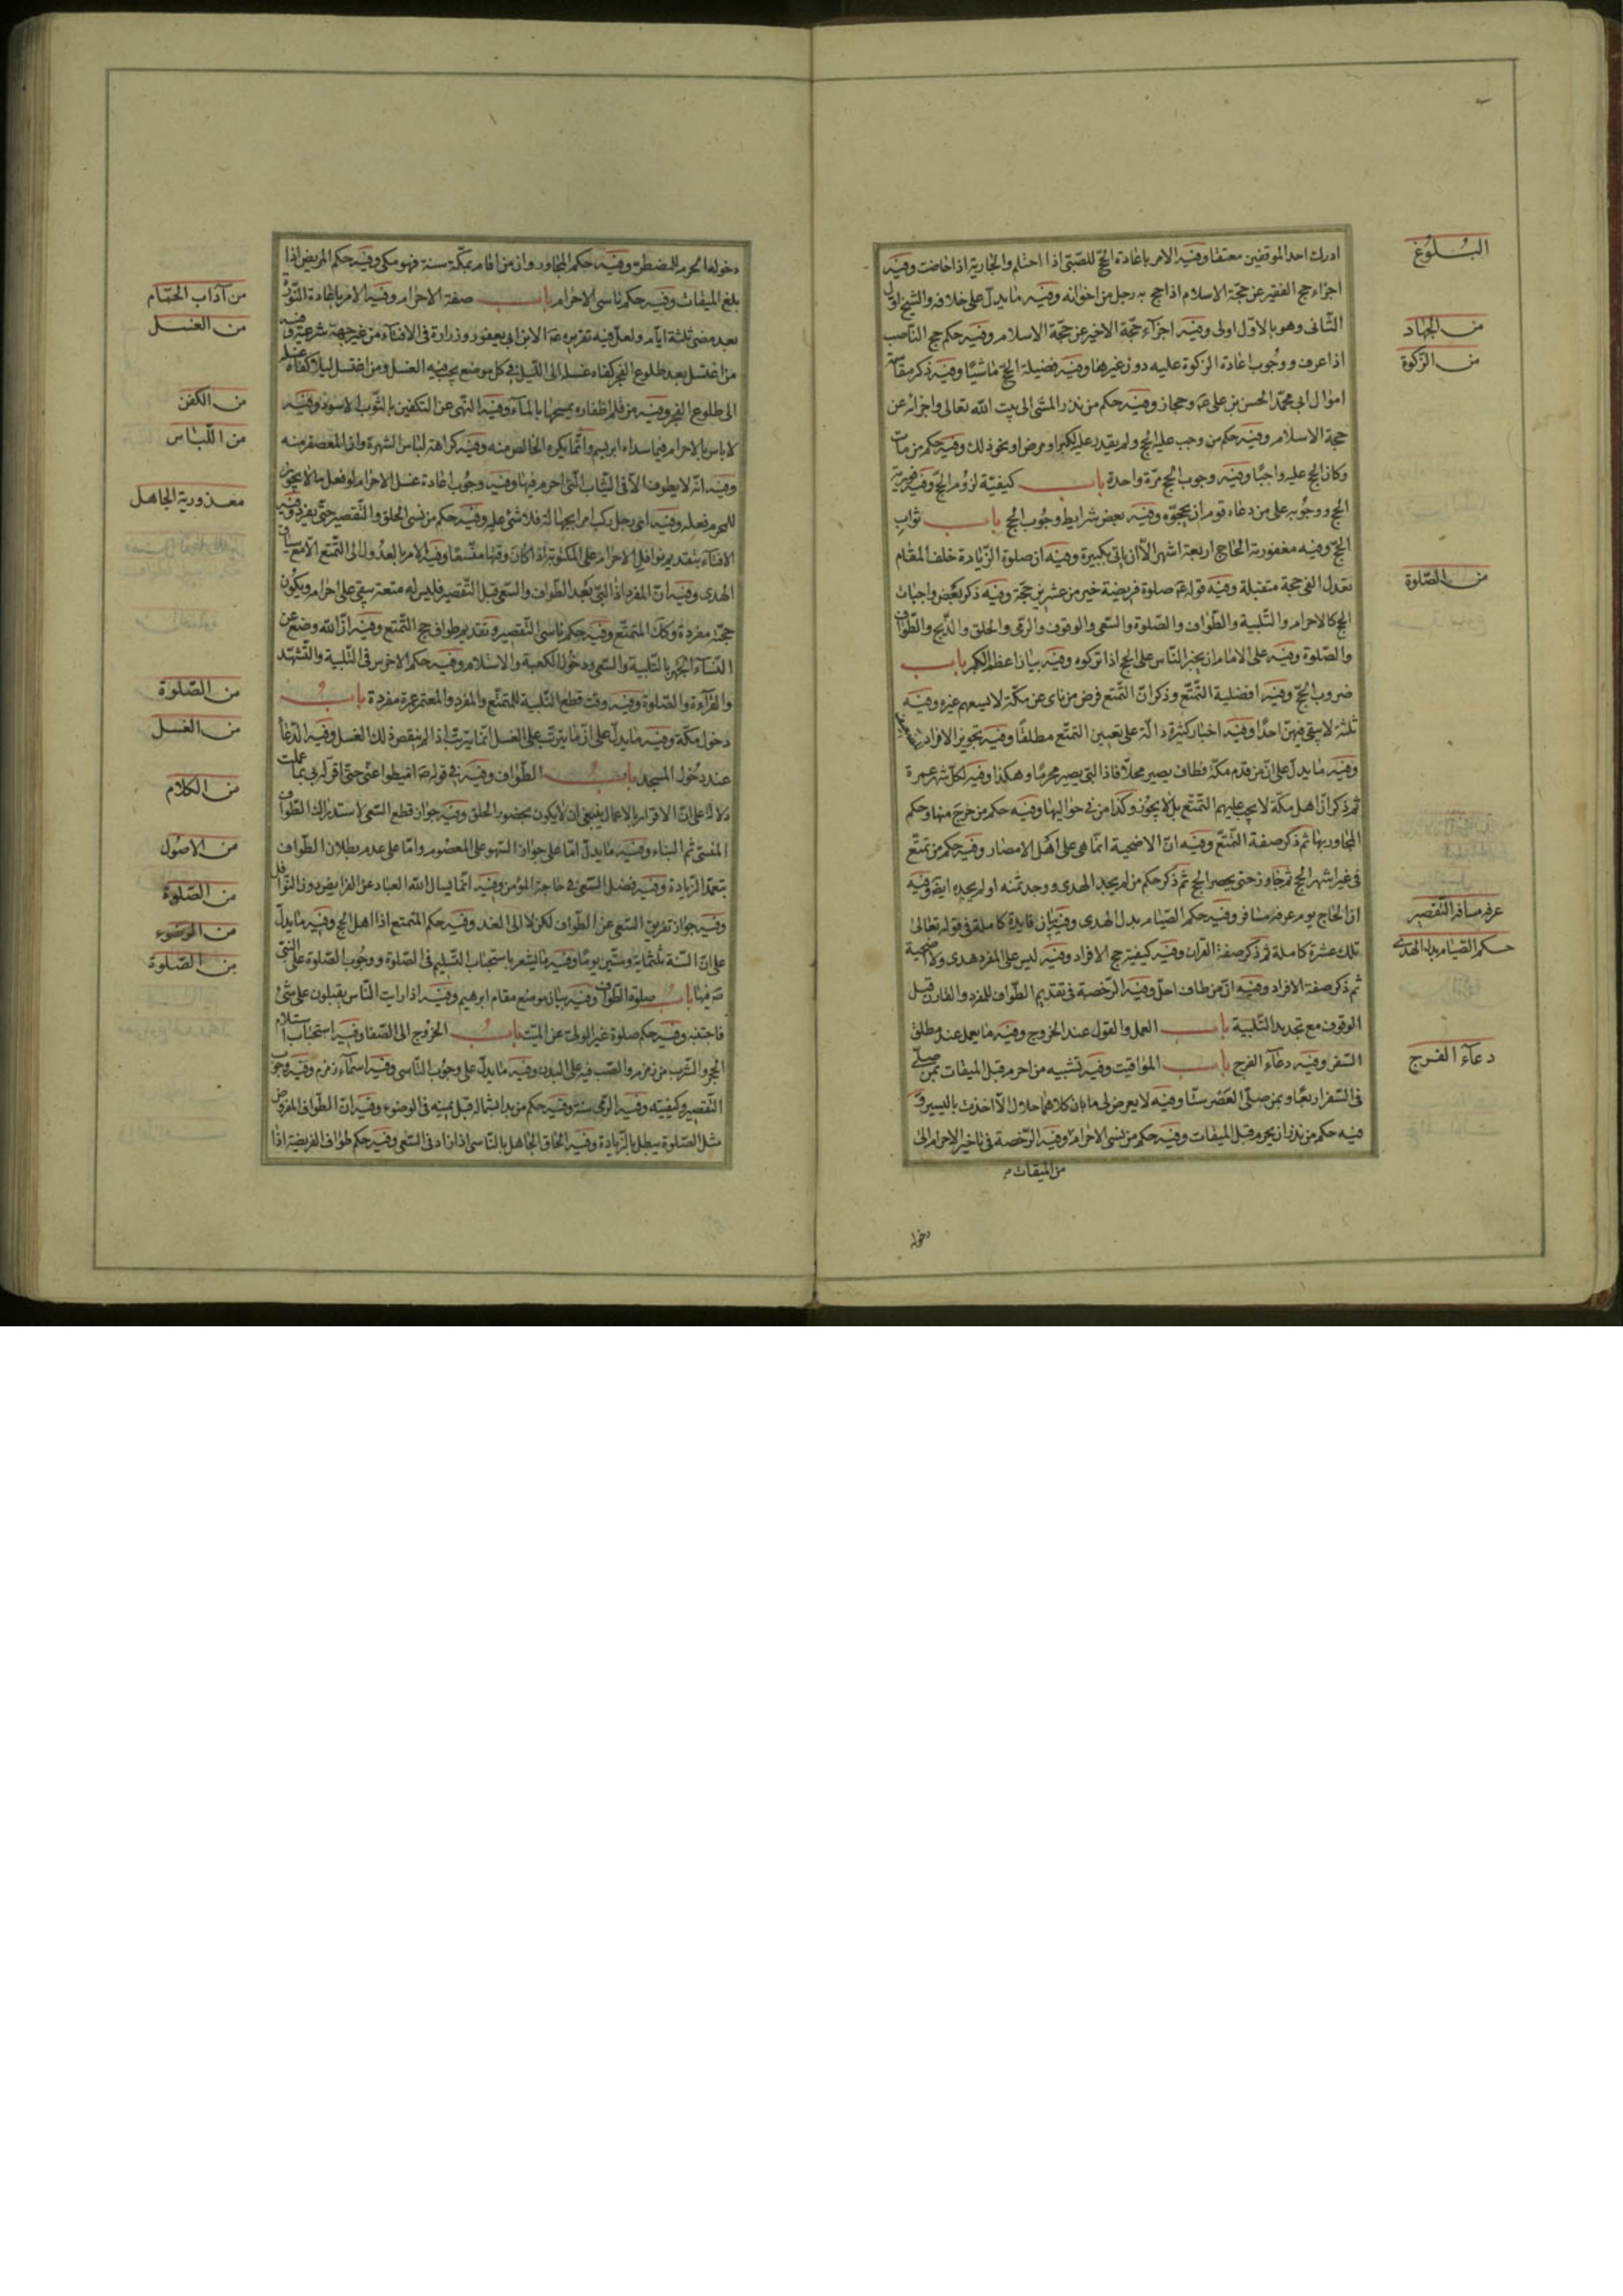 البلوغ
ادرك احد الموقفين معتقا وفيه الامر باعادة الحج للصبي اذا احتلم والجارية اذا حاضت وفيه
اجزاء حج الفقير عن حجة الاسلام اذا حج به رجل من اخوانه وفيه ما يدل على خلافه والشيخ اول
من الجهاد
الثاني وهو بالاول اولى وفيه اجزاء حجة الاخير عن حجة الاسلام وفيه حكم حج الناصب
من الزكوة
اذا عرف ووجوب اعادة الزكوة عليه دون غيرها وفيه فضيلة الحج ماشيا وفيه ذكر مقاسمة
اموال ابي محمد الحسن بن علي ع وحجاز وفيه حكم من نذر المشي الى بيت الله تعالى واجزائه عن
حجة الاسلام وفيه حكم من وجب عليه الحج ولم يقدر عليه لكبر او مرض او نحو ذلك وفيه حكم من مات
وكان الحج عليه واجبا وفيه وجوب الحج مرة واحدة باب كيفية لزوم الحج وفيه
الحج ووجوبه على من دعاه قوم ان يحجوه وفيه بعض شرايط وجوب الحج باب ثواب
الحج وفيه مغفورية الحاج اربعة اشهر الا ان ياتي بكبيرة وفيه ان صلوة الزيادة خلف المقام
من الصلوة
تعدل الفي حجة متقبلة وفيه قوله ع صلوة فريضة خير من عشرين حجة وفيه ذكر بعض واجبات
الحج كالاحرام والتلبية والطواف والصلوة والسعي والوقوف والرمي والحلق والذبح والطواف
والصلوة وفيه على الامام ان يجبر الناس على الحج اذا تركوه وفيه بيان اعظم الكبر باب
ضروب الحج وفيه افضلية التمتع وذكر ان التمتع فرض من ناى عن مكة لا يسعهم غيره وفيه
ثلثة لا يتقى فيهن احدا وفيه اخبار كثيرة دالة على تعيين التمتع مطلقا وفيه تجويز الافراد
وفيه ما يدل على ان من قدم مكة فطاف يصير محلا فاذا لبى يصير محرما وهكذا وفيه لكل شهر عمرة
ثم ذكر ان اهل مكة لا يجب عليهم التمتع بل لا يجوز وكذا من في حواليها وفيه حكم من خرج منها وحكم
المجاور بها ثم ذكر صفة التمتع وفيه ان الاضحية انما هي على اهل الامصار وفيه حكم من تمتع
في غير اشهر الحج ثم جاور حتى يحضر الحج ثم ذكر حكم من لم يجد الهدى ووجد ثمنه او لم يجده ايضا وفيه
عرفه مسافر التقصير
ان الحاج يوم عرفه مسافر وفيه حكم الصيام بدل الهدى وفيه بيان فايدة كاملة في قوله تعالى
حكم الصيام بدل الهدى
تلك عشرة كاملة ثم ذكر صفة القران وفيه كيفية حج الافراد وفيه ليس على المفرد هدى ولا اضحية
ثم ذكر صفة الافراد وفيه ان من طاف احل وفيه الرخصة في تقديم الطواف للمفرد والقارن قبل
الوقوف مع تجديد التلبية باب العمل والقول عند الخروج وفيه ما يعمل عند مطلق
دعآء الفرج
السفر وفيه دعاء الفرج باب المواقيت وفيه تشبيه من احرم قبل الميقات بمن صلى
في السفر اربعا وبمن صلى العصر ستا وفيه لا يعرض لي بابان كلاهما حلال الا اخذت باليسير و
فيه حكم من نذر ان يحرم قبل الميقات وفيه حكم من نسى الاحرام وفيه الرخصة في تاخير الاحرام الى
من الميقات
دخوله
دخولها الحرم للمضطر وفيه حكم المجاور وان من اقام بمكة سنة فهو مكي وفيه حكم المريض اذا
من آداب الحمام
بلغ الميقات وفيه حكم ناسى الاحرام باب صفة الاحرام وفيه الامر باعادة التنور
من الغسل
بعد مضى ثلثة ايام ولعل فيه تقريره ع لابن ابي يعفور وزرارة في الافتاء من غير جهة شرعية وفيه
من اغتسل بعد طلوع الفجر كفاه غسله الى الليل في كل موضع يجب فيه الغسل ومن اغتسل ليلا كفاه غسله
من الكفن
الى طلوع الفجر وفيه من قلم اظفاره يمسحها بالماء وفيه النهى عن التكفين بالثوب الاسود وفيه
من اللباس
لا باس بالاحرام فيما سداه ابريسم وانما يكره الخالص منه وفيه كراهة لباس الشهرة وان المعصفر منه
وفيه انه لا يطوف الا في الثياب التي احرم فيها وفيه وجوب اعادة غسل الاحرام لو فعل ما لا يجوز
معذورية الجاهل
للمحرم فعله وفيه اى رجل ركب امرا بجهالة فلا شئ عليه وفيه حكم من نسى الحلق والتقصير حتى
الافتاء بتقديم نوافل الاحرام على المكتوبة اذا كان وقتها متسعا وفيه الامر بالعدول الى التمتع الا مع سياق
الهدى وفيه ان المفرد اذا لبى بعد الطواف والسعى قبل التقصير فليس له متعة يبقى على احرامه ويكون
حجته مفردة وكك المتمتع وفيه حكم ناسى التقصير وتقديم طواف حج التمتع وفيه ان الله وضع عن
النساء الجهر بالتلبية والسعى ودخول الكعبة والاستلام وفيه حكم الاخرس في التلبية والتشهد
من الصلوة
والقرآءة والصلوة وفيه وقت قطع التلبية للمتمتع والمفرد والمعتمر عمرة مفردة باب
من الغسل
دخول مكة وفيه ما يدل على ان ما يترتب على الغسل انما يترتب اذا لم ينقض ذلك الغسل وفيه الدعا
عند دخول المسجد باب الطواف وفيه في قوله ص اميطوا عني حتى اقر لربي بما عملت
من الكلام
دلالة على ان الاقرار بالاعمال ينبغي ان لا يكون بحضور الخلق وفيه جواز قطع السعى لاستدراك الطواف
من الاصول
المنسى ثم البناء وفيه ما يدل اما على جواز السهو على المعصوم واما على عدم بطلان الطواف
من الصلوة
بتعمد الزيادة وفيه فضل السعى في حاجة المؤمن وفيه انما يسال الله العباد عن الفرايض دون النوافل
من الوضوء
وفيه جواز تفريق السعى عن الطواف لكن لا الى الغد وفيه حكم المتمتع اذا اهل الحج وفيه ما يدل
من الصلوة
على ان السنة ثلثماية وستين يوما وفيه ما يشعر باستحباب التسليم في الصلوة ووجوب الصلوة على النبي
ص فيها باب صلوة الطواف وفيه بيان موضع مقام ابرهيم وفيه اذا رايت الناس يقبلون على شئ
فاجتنبه وفيه حكم صلوة غير الولى عن الميت باب الخروج الى الصفا وفيه استحباب استلام
الحجر والشرب من زمزم والصب منه على البدن وفيه ما يدل على وجوب التاسى وفيه اسماء زمزم وفيه وجوب
التقصير وكيفيته وفيه الرمى سنة وفيه حكم من بدا بشماله قبل يمينه في الوضوء وفيه ان الطواف المفروض
مثل الصلوة يبطل بالزيادة وفيه الحاق الجاهل بالناسى اذا زاد في السعى وفيه حكم طواف الفريضة اذا